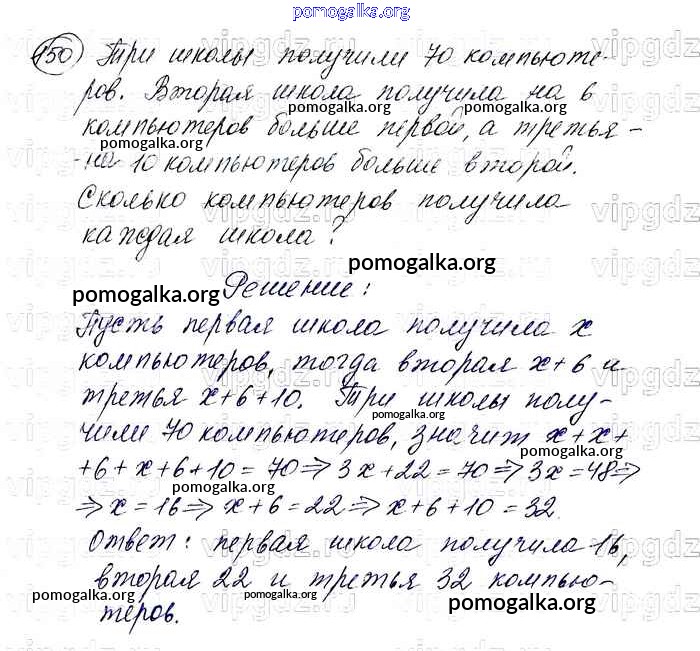 pomogalka.org
150 Три школы получили 70 компьюте-
ров. Вторая школа получила на 6
pomogalka.org pomogalka.org
компьютеров больше первой, а третья -
на 10 компьютеров больше второй.
Сколько компьютеров получила
каждая школа?
pomogalka.org
pomogalka.org Решение:
Пусть первая школа получила х
компьютеров, тогда вторая х+6 и
третья х+6+10. Три школы полу-
pomogalka.org
чили 70 компьютеров, значит х+х+
pomogalka.org
+6+х+6+10=70⇒3х+22=70⇒3х=48⇒
pomogalka.org
⇒х=16⇒х+6=22⇒х+6+10=32.
Ответ: первая школа получила 16,
pomogalka.org
вторая 22 и третья 32 компью-
pomogalka.org pomogalka.org pomogalka.org
теров.